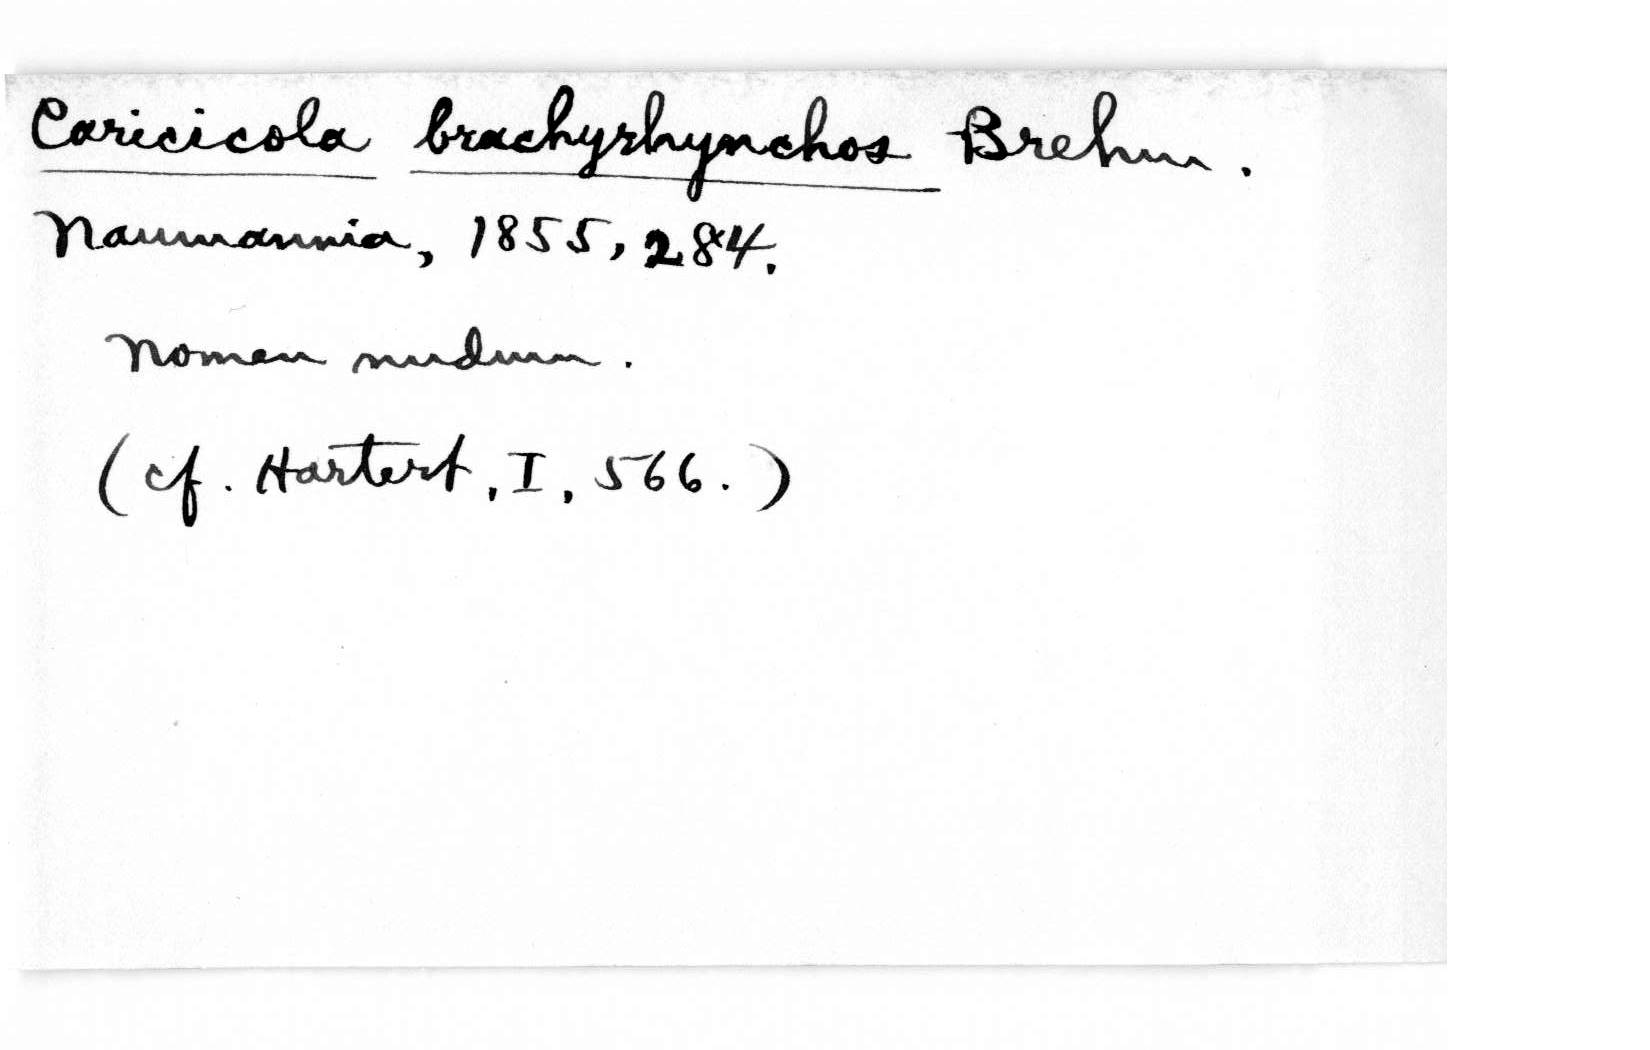 Caricicola brachyrhynchos Brehm.
Naumannia, 1855, 284.
Nomen nudum.
(cf. Hartert, I, 566.)